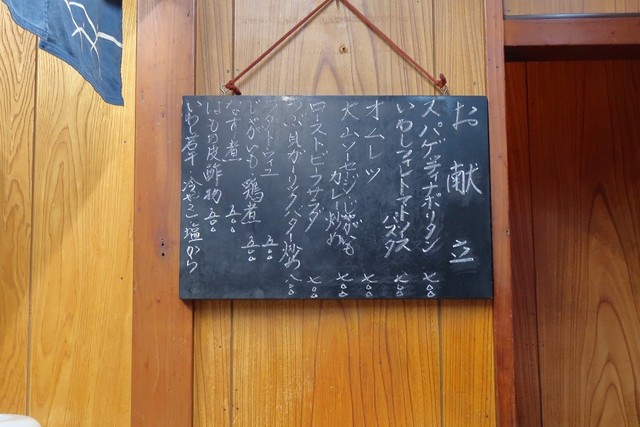 お献立
スパゲッティナポリタン 七〇〇
いわしフィレトマトソース
パスタ 七〇〇
オムレツ 七〇〇
大山ソーセージじゃがも
カレー炒め 七〇〇
ローストビーフサラダ 七〇〇
つぶ貝ガーリックバター炒め 八〇〇
五〇〇
じゃがいも 鶏煮 五〇〇
なす煮 五〇〇
はもの皮酢物 五〇〇
いわし若干 冷やっこ 塩から